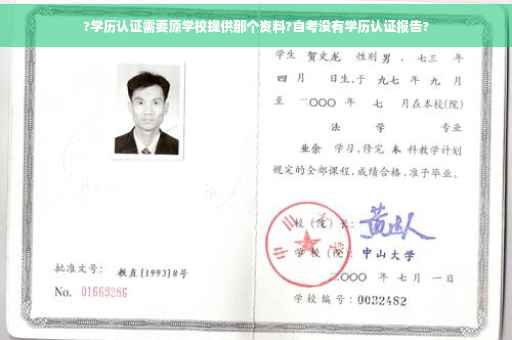 ?学历认证需要原学校提供那个资料?自考没有学历认证报告?
学生 贺文龙 性别 男 、七三 年
四 月 日生,于 九七 年 九 月
至 二〇〇〇 年 七 月在本校(院)
法 学 专业
业余 学习,修完 本 科教学计划
规定的全部课程,成绩合格,准予毕业。
校(院)长:
学校(院): 中山大学
二〇〇〇 年 七 月 一 日
学校编号: 0032482
批准文号: 教直[1993]8号
No. 01669286